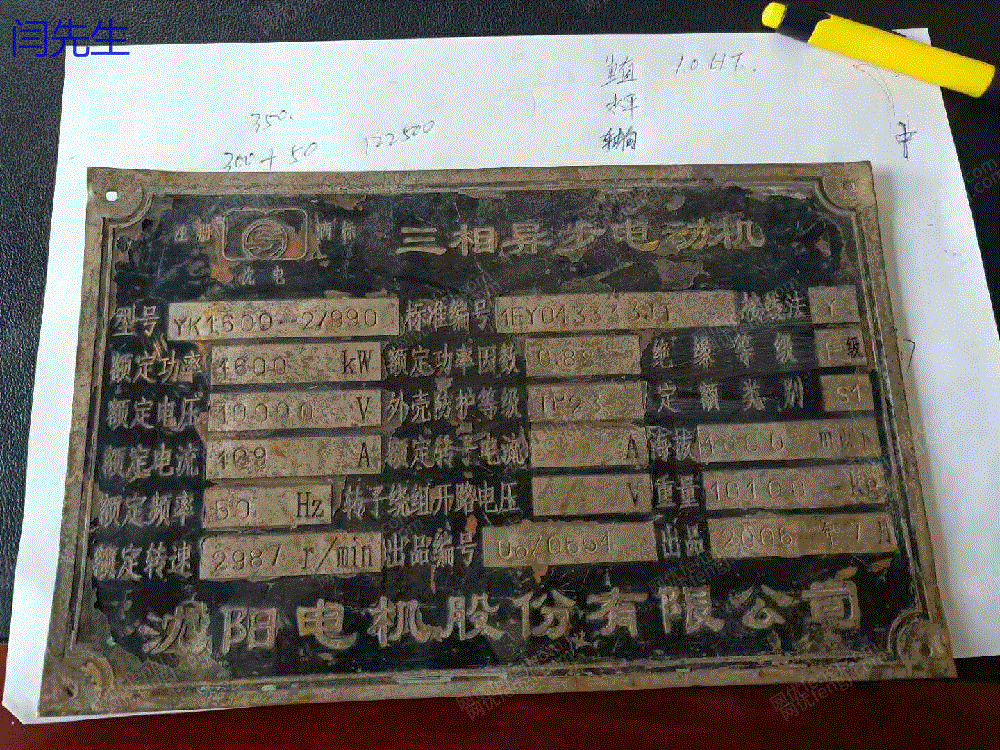 闫先生
垂直 1.0HT.
水平
轴向
中
350.
300+50 122500
注册 商标
沈电
三相异步电动机
型号 YK1600-2/990 标准编号 1EY043333JT 接线法 Y
额定功率 1600 kW 额定功率因数 绝缘等级 F级
额定电压 10000 V 外壳防护等级 IP23 定额类别 S1
额定电流 109 A 额定转子电流 A 海拔 1000 m以下
额定频率 50 Hz 转子绕组开路电压 V 重量 10100 kg
额定转速 2987 r/min 出品编号 出品 2006 年 7 月
沈阳电机股份有限公司